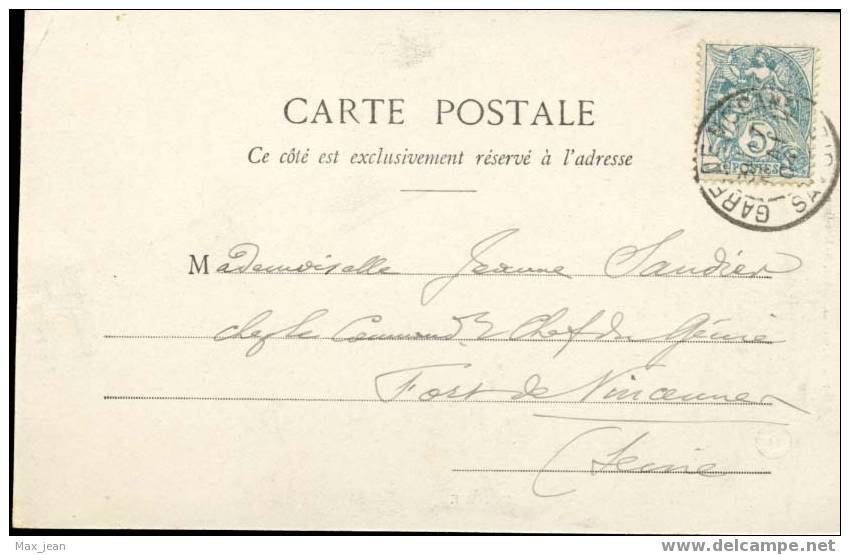 CARTE POSTALE
Ce côté est exclusivement réservé à l'adresse
Mademoiselle Jeanne Sandier
chez le Command.t Chef du Génie
Fort de Vincennes
(Seine)
5c
POSTES
GARE DE
Max_jean
delcampe.net